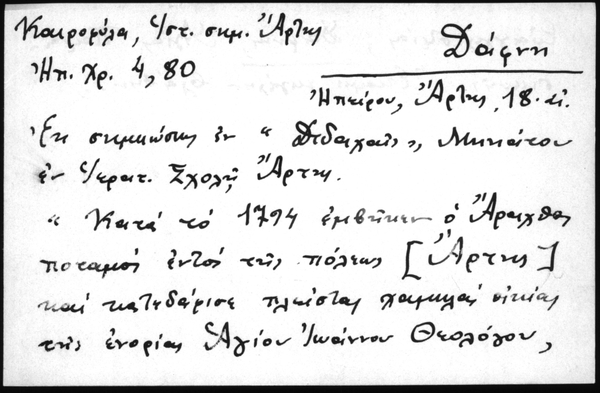 Καιροφύλα, Ἱστ. σημ. Ἄρτης
Ἠπ. Χρ. 4, 80
Δάφνη
Ἠπείρου, Ἄρτης, 18. αἰ.
Ἐκ σημειώσεως ἐν "Διδαχαῖς", Μηνιάτου
ἐν Ἱερατ. Σχολῇ Ἄρτης.
"Κατὰ τὸ 1794 ἐμβῆκεν ὁ Ἄραχθος
ποταμὸς ἐντὸς τῆς πόλεως [Ἄρτης]
καὶ κατεδάφισε πλείστας χαμηλὰς οἰκίας
τῆς ἐνορίας Ἁγίου Ἰωάννου Θεολόγου,